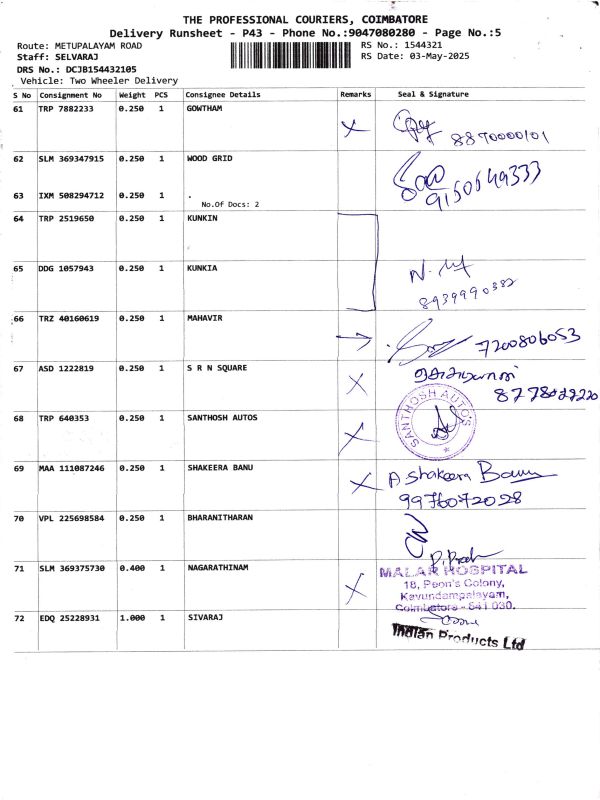 THE PROFESSIONAL COURIERS, COIMBATORE
Delivery Runsheet - P43 - Phone No.:9047080280 - Page No.:5
Route: METUPALAYAM ROAD
RS No.: 1544321
Staff: SELVARAJ
RS Date: 03-May-2025
DRS No.: DCJB154432105
Vehicle: Two Wheeler Delivery
S No Consignment No Weight PCS Consignee Details Remarks Seal & Signature
61 TRP 7882233 0.250 1 GOWTHAM
8870000101
62 SLM 369347915 0.250 1 WOOD GRID
63 IXM 508294712 0.250 1 .
No.Of Docs: 2
64 TRP 2519650 0.250 1 KUNKIN
65 DDG 1057943 0.250 1 KUNKIA
8939990382
66 TRZ 40160619 0.250 1 MAHAVIR
7200806053
67 ASD 1222819 0.250 1 S R N SQUARE
68 TRP 640353 0.250 1 SANTHOSH AUTOS
SANTHOSH AUTOS
69 MAA 111087246 0.250 1 SHAKEERA BANU
A. Shakeera Banu
9976072028
70 VPL 225698584 0.250 1 BHARANITHARAN
71 SLM 369375730 0.400 1 NAGARATHINAM
MALAR HOSPITAL
18, Peon's Colony,
Kavundampalayam,
Coimbatore - 641 030.
72 EDQ 25228931 1.000 1 SIVARAJ
Indian Products Ltd